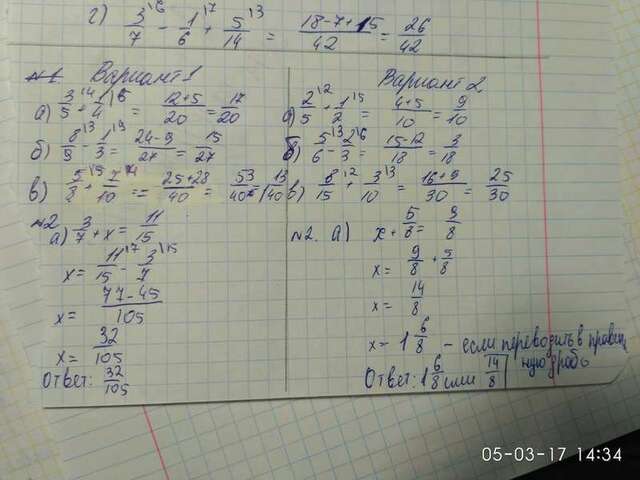 г) 3\6/7 - 1\7/6 + 5\3/14 = 18-7+15/42 = 26/42
№1 Вариант 1
а) 3\4/5 + 1\5/4 = 12+5/20 = 17/20
б) 8\3/9 - 1\9/3 = 24-9/27 = 15/27
в) 5\5/8 + 7\4/10 = 25+28/40 = 53/40 = 1 13/40
№2 а) 3/7 + x = 11/15
x = 11\7/15 - 3\15/7
x = 77-45/105
x = 32/105
Ответ: 32/105
Вариант 2
а) 2\2/5 + 1\5/2 = 4+5/10 = 9/10
б) 5\3/6 - 2\6/3 = 15-12/18 = 3/18
в) 8\2/15 + 3\3/10 = 16+9/30 = 25/30
№2. а) x + 5/8 = 9/8
x = 9/8 + 5/8
x = 14/8
x = 1 6/8 - если переводить в правиль
ную дробь
Ответ: 1 6/8 или 14/8
05-03-17 14:34